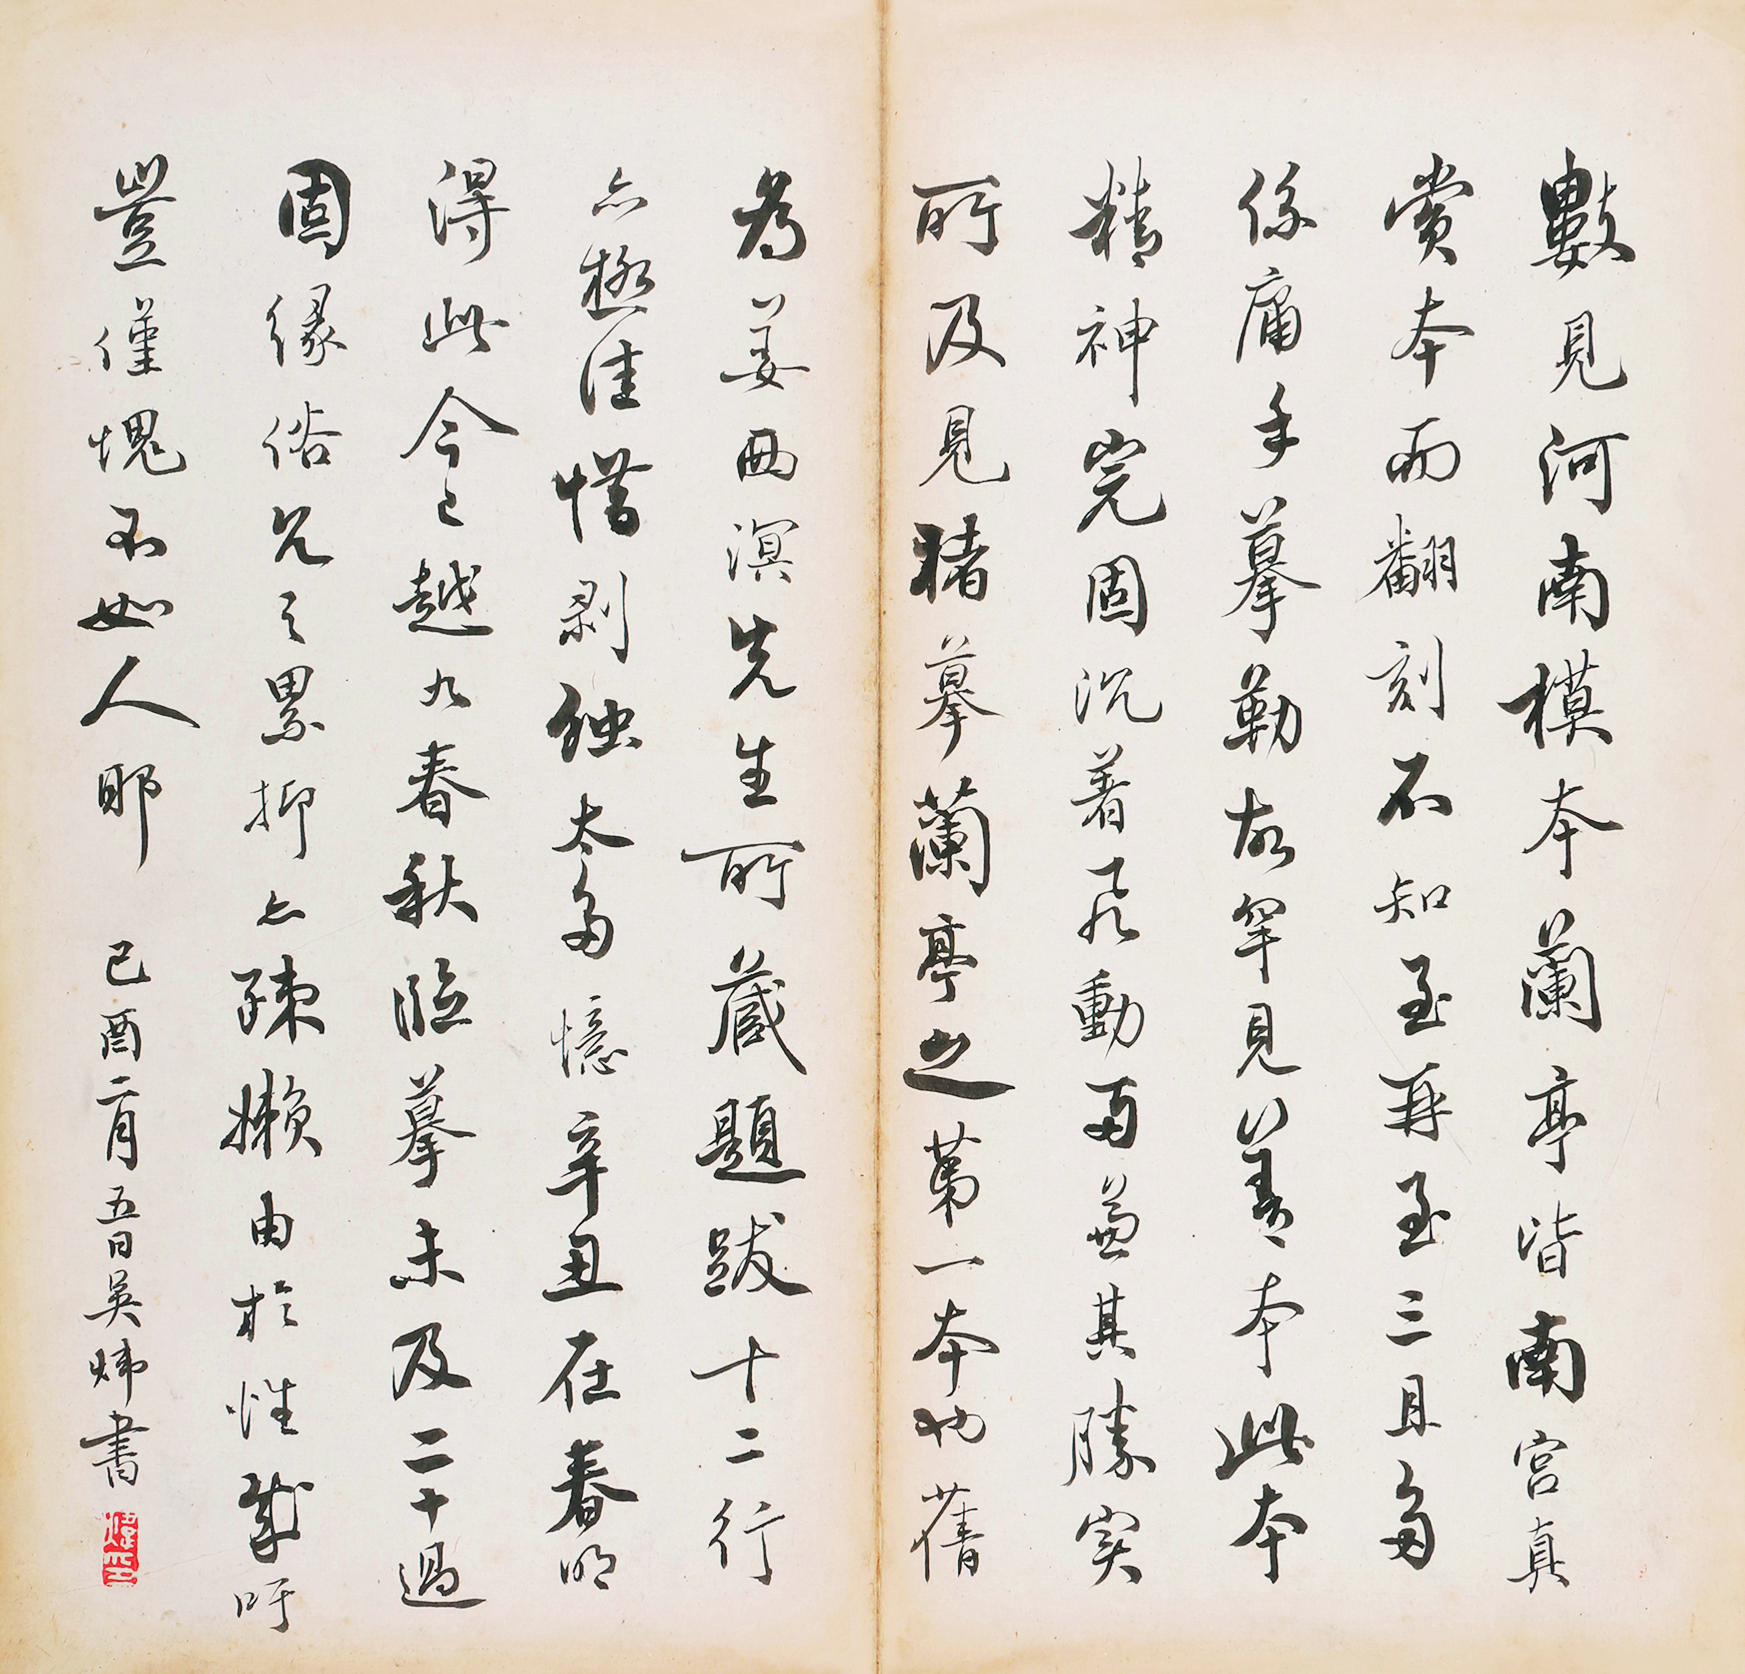 數見河南模本蘭亭皆南宮真
賞本而翻刻不知至再至三且多
係庸手摹勒故罕見善本此本
精神完固沉着飛動而兼其勝實
所及見褚摹蘭亭之第一本也舊
為姜西溟先生所藏題跋十二行
亦極佳惜剥蝕太多憶辛丑在春明
得此今已越九春秋臨摹未及二十過
固緣俗冗之累抑亦疎懶由於性成吁
豈僅愧不如人耶 己酉二月五日吳煒書
煒印